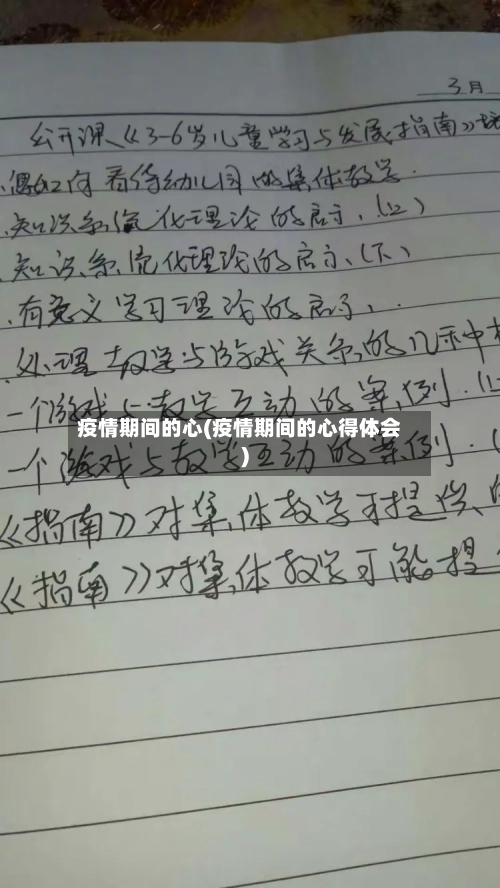 3月
公开课《3-6岁儿童学习与发展指南》
如何看待幼儿园的集体教学
知识系统化理论的启示.(上)
知识系统化理论的启示.(下)
有意义学习理论的启示.
处理教学与游戏关系的几种
一个游戏与教学互动的案例.(
疫情期间的心(疫情期间的心得体会
)
一个游戏与教学互动的案例.(
《指南》对集体教学可提供
《指南》对集体教学可能提